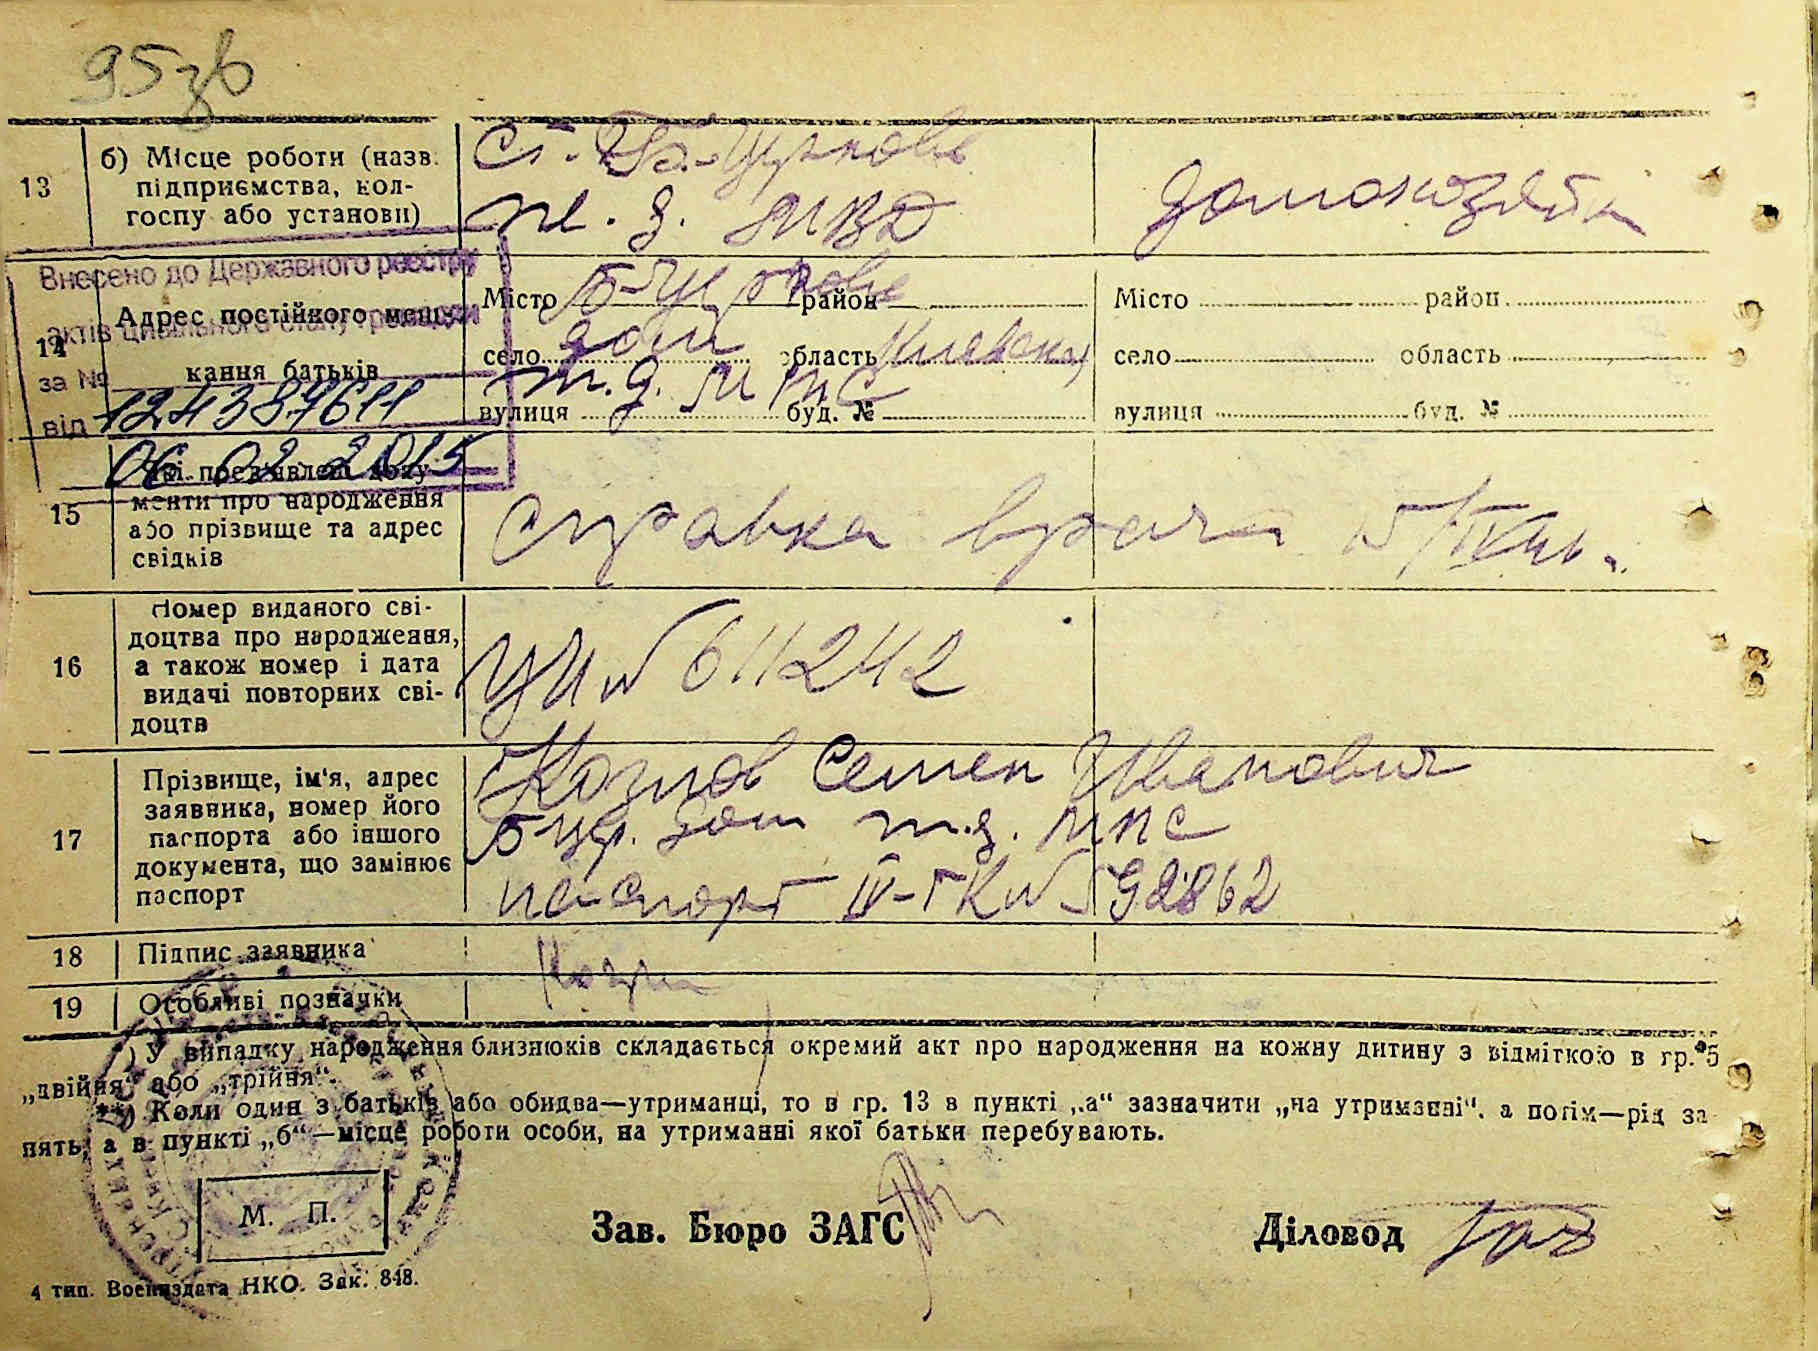 95зв
13
б) Місце роботи (назв.
підприємства, кол-
госпу або установи)
ст. Б-Церковь
ж. д. МВД
домохозяйка
Внесено до Державного реєстру
актів цивільного стану громадян
за №
124387611
від 06.02.2015
14
Адрес постійного меш-
кання батьків
Місто Б-Церковь район
село дом область Киевская
вулиця т. д. МПС буд. №
Місто район
село область
вулиця буд. №
15
Які пред'явлені доку-
менти про народження
або прізвище та адрес
свідків
Справка врача 15/IV 46.
16
Номер виданого сві-
доцтва про народження,
а також номер і дата
видачі повторних сві-
доцтв
УИ № 611242
17
Прізвище, ім'я, адрес
заявника, номер його
паспорта або іншого
документа, що замінює
паспорт
Козлов Семен Иванович
Б-Цер. дом т. д. МПС
паспорт IV-ГК № 592862
18
Підпис заявника
19
Особливі позначки
*) У випадку народження близнюків складається окремий акт про народження на кожну дитину з відміткою в гр. 5
„двійня“ або „трійня“.
**) Коли один з батьків або обидва—утриманці, то в гр. 13 в пункті „а“ зазначити „на утриманні“, а потім—рід за
нять, а в пункті „б“—місце роботи особи, на утриманні якої батьки перебувають.
М. П.
Зав. Бюро ЗАГС
Діловод
4 тип. Воениздата НКО. Зак. 848.